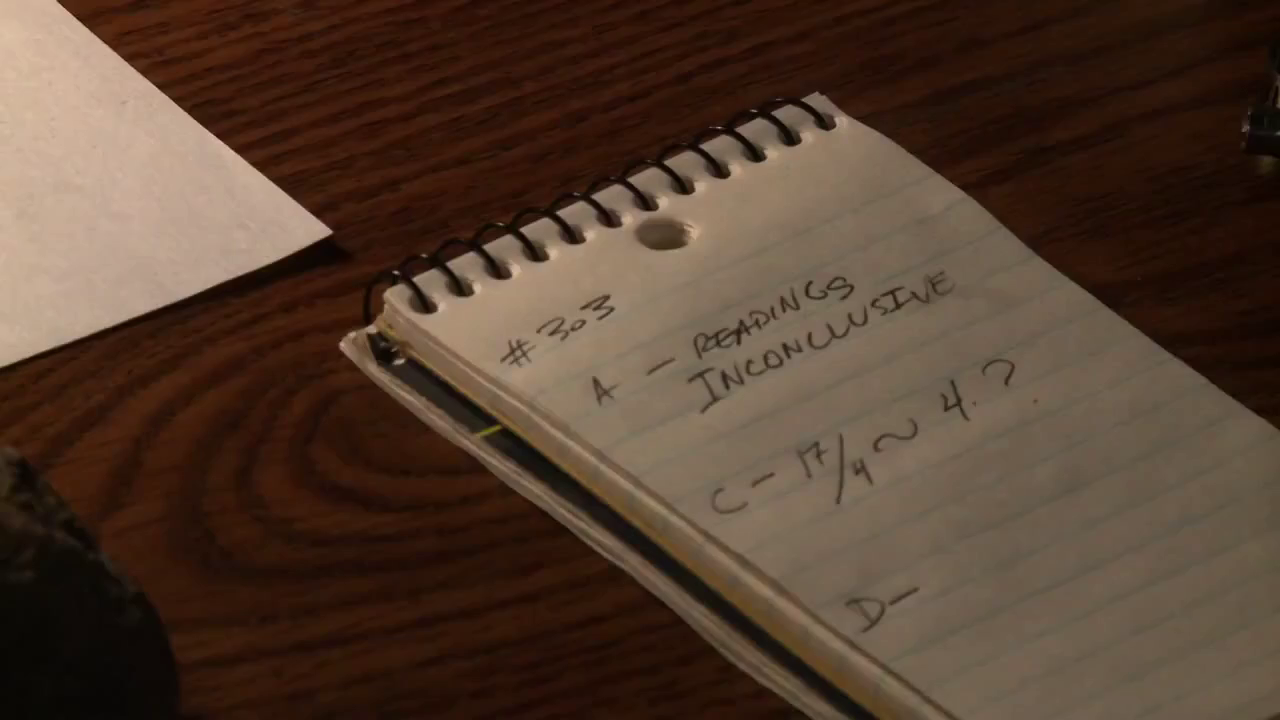 #303
A — READINGS
INCONCLUSIVE
C - 17/4 ~ 4.?
D-